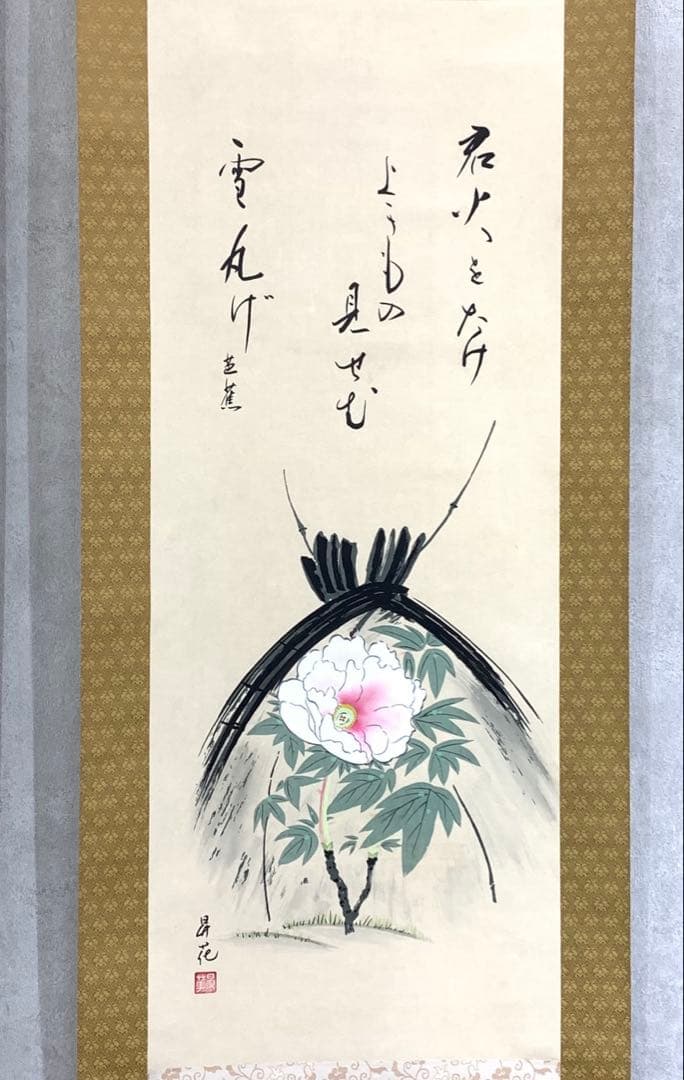 君火をたけ
よきもの
見せむ
雪丸げ
芭蕉
昇花